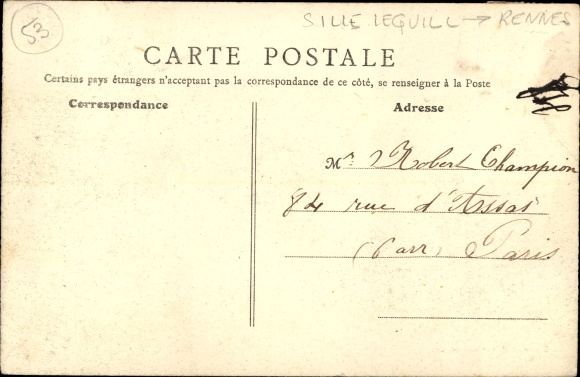 53
SILLE LEGUILL → RENNES
CARTE POSTALE
Certains pays étrangers n'acceptant pas la correspondance de ce côté, se renseigner à la Poste
Correspondance
Adresse
Mr. Robert Champion
84 rue d'Assas
Paris